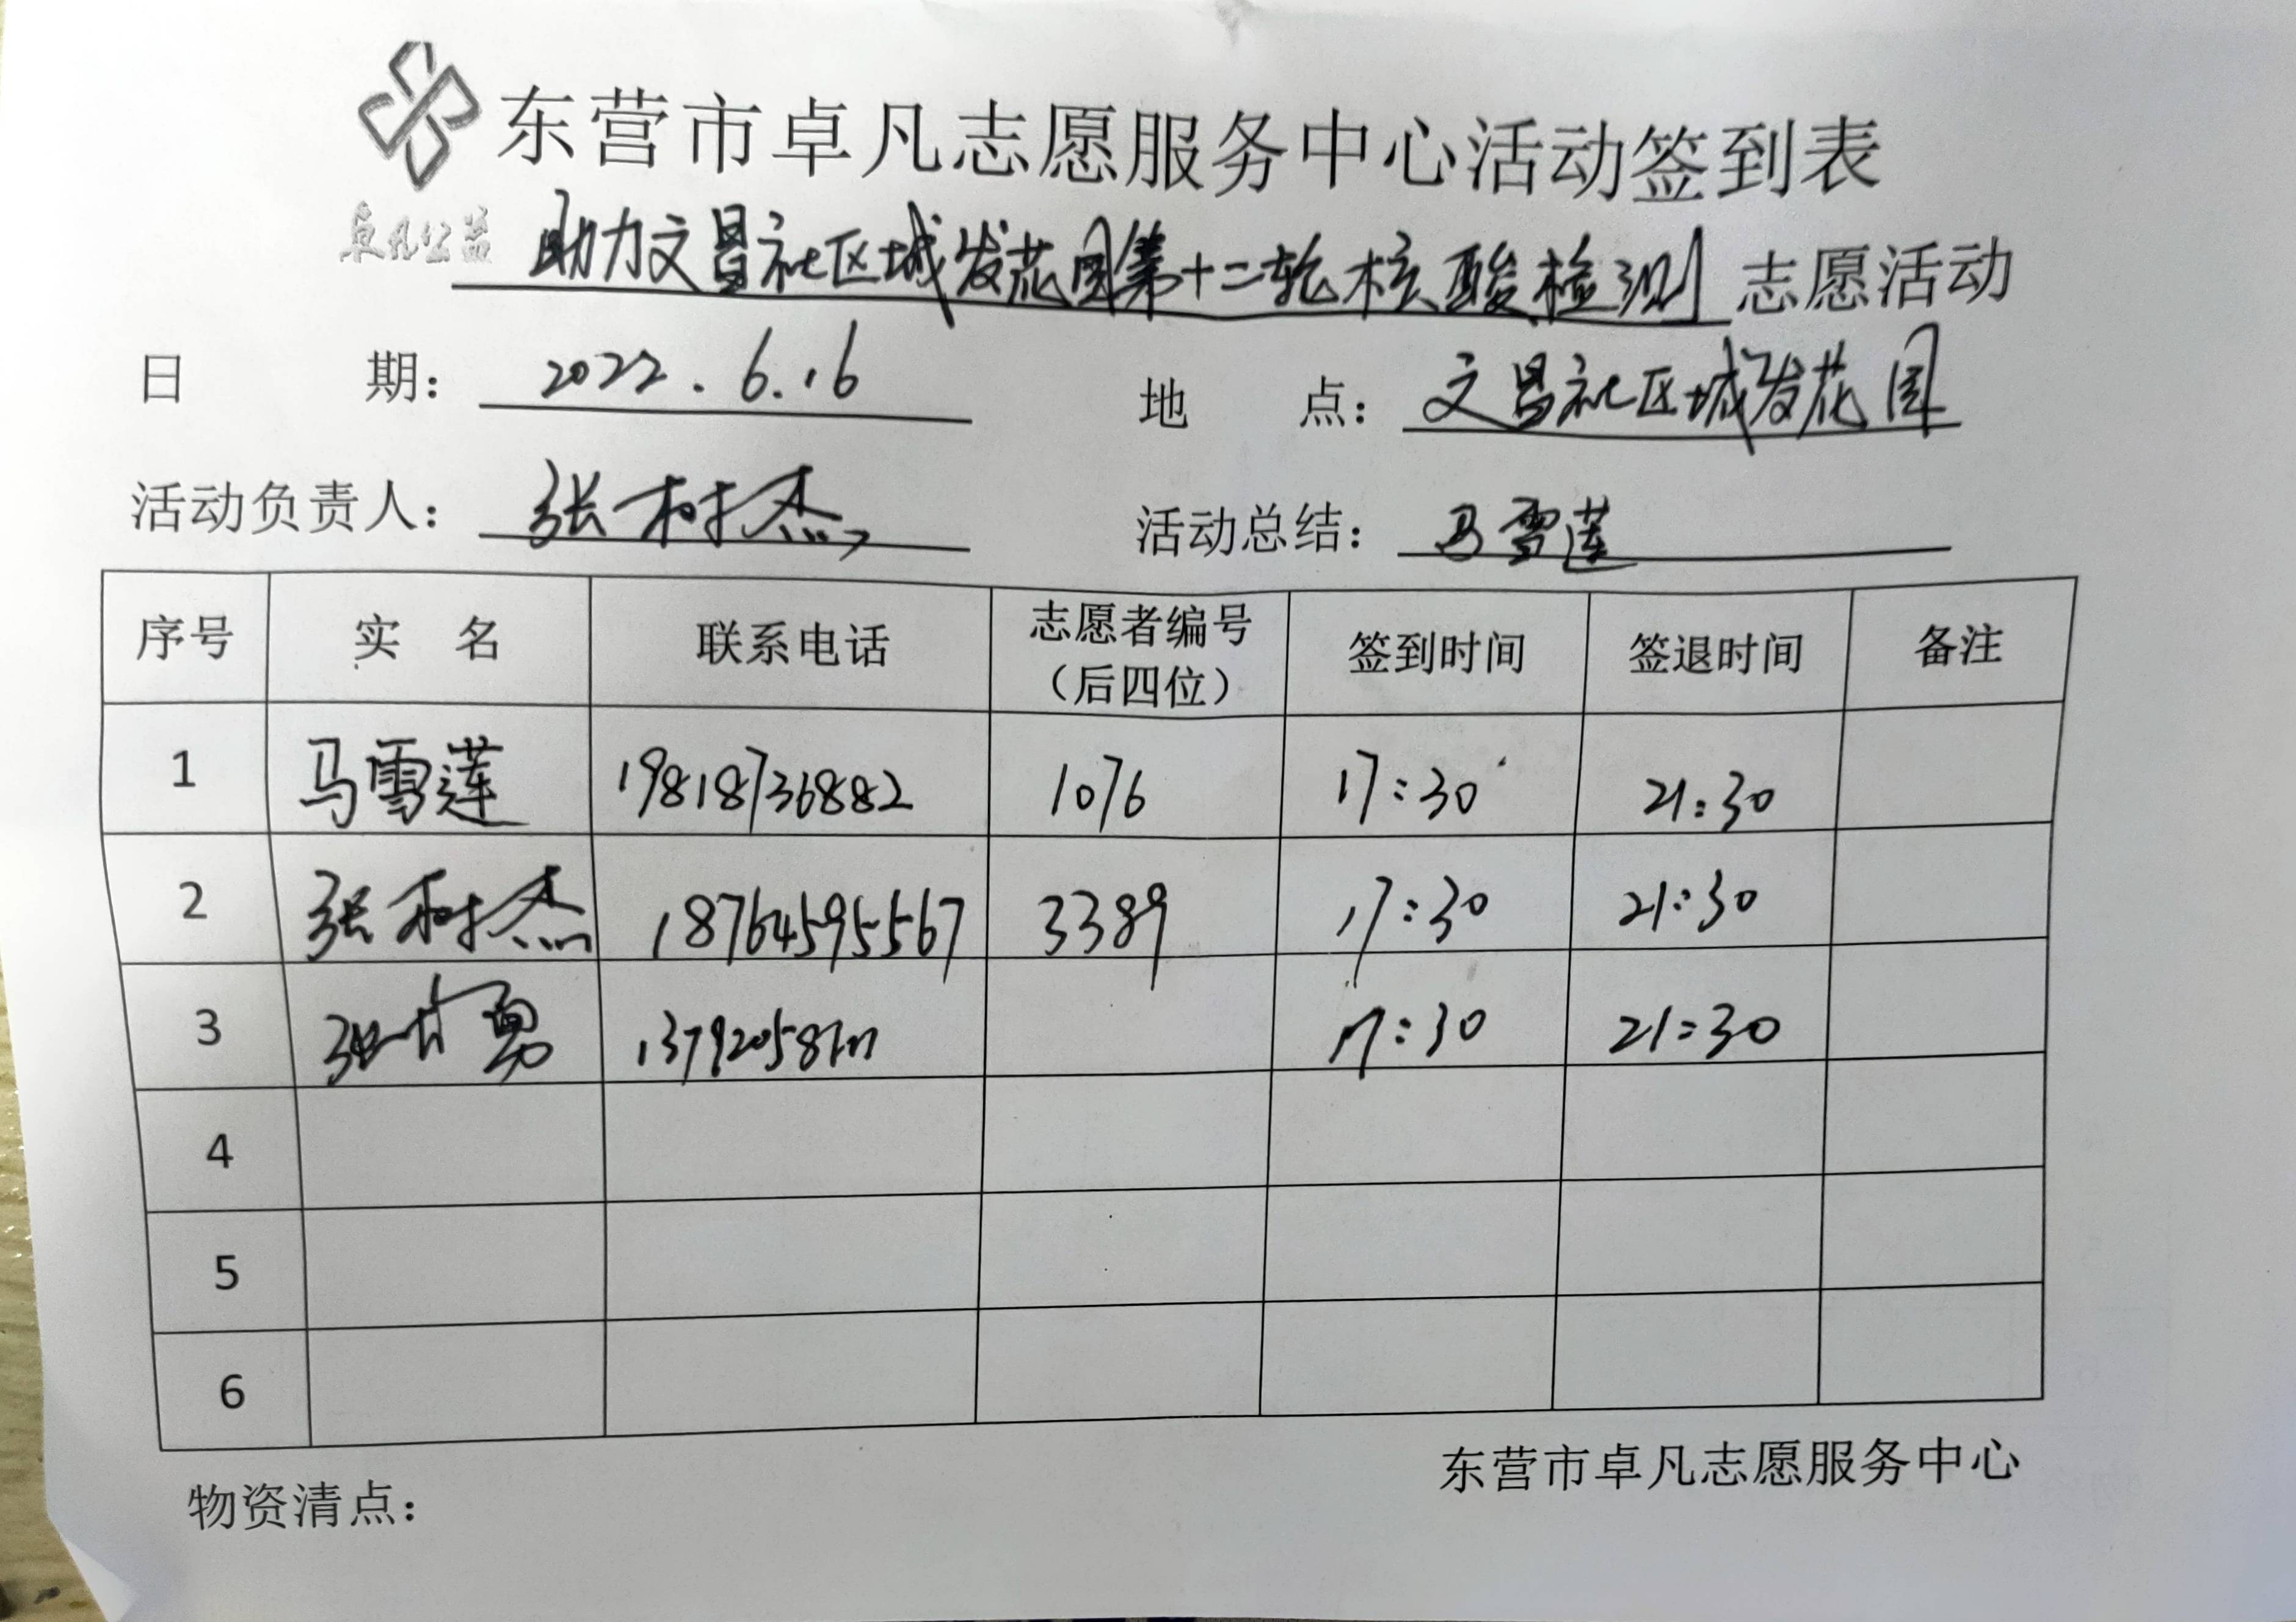 东营市卓凡志愿服务中心活动签到表
卓凡公益 助力文昌社区城发花园第十二轮核酸检测志愿活动
日 期：2022.6.16 地 点：文昌社区城发花园
活动负责人：张树杰 活动总结：马雪莲
序号 实 名 联系电话 志愿者编号（后四位） 签到时间 签退时间 备注
1 马雪莲 19818736882 1076 17:30 21:30
2 张树杰 18764595567 3389 17:30 21:30
3 17:30 21:30
4
5
6
东营市卓凡志愿服务中心
物资清点：